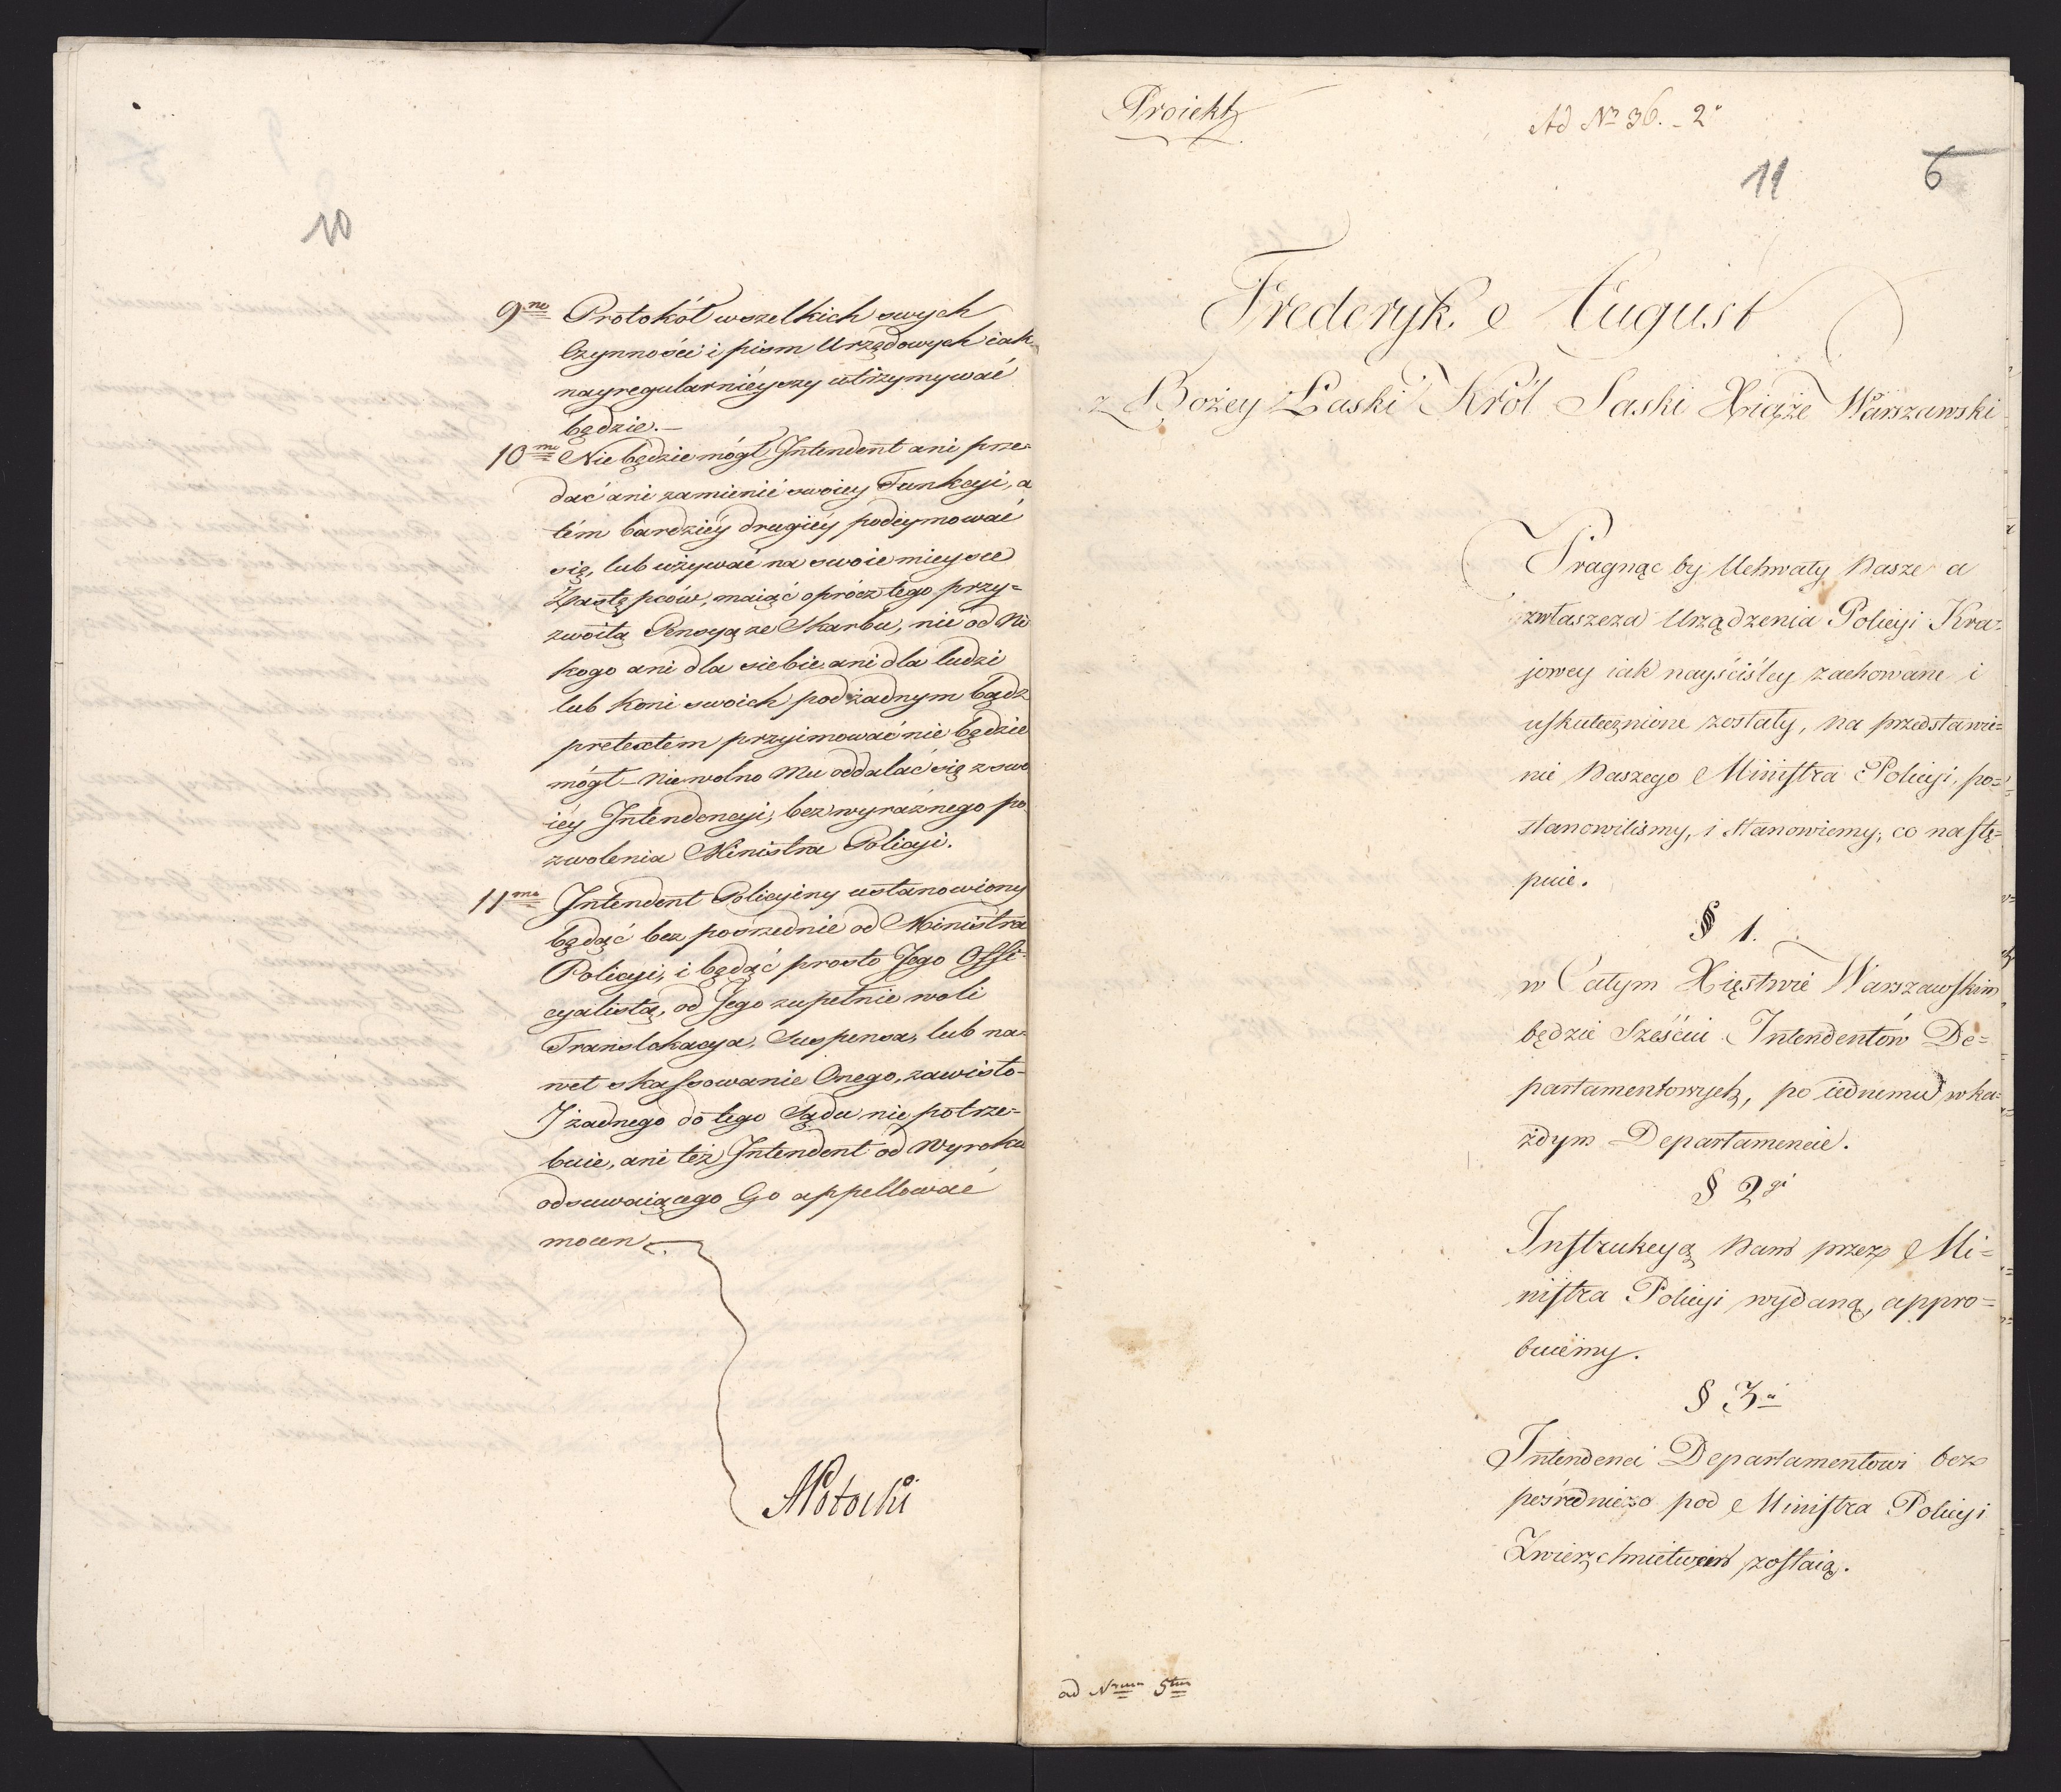 10
9no Protokół wszelkich swych
Czynności i pism Urzędowych iak
nayregularniéyszy utrzymywać
będzie.—
10mo Nie będzie mógł Intendent ani prze=
dać ani zamienić swoiey Funkcyi, a
tém bardziéy drugiéy podeymować
się, lub używać na swoie mieysce
Zastępców, maiąć oprócz tego przy=
zwoitą Pensyą ze Skarbu, nié od Ni
kogo ani dla siebie ani dla ludzi
lub koni swoich pod żadnym bądz
pretextem przyimować nie będzie
mógł – nie wolno Mu oddalać się z swo
iéy Intendencyi, bez wyraźnego po
zwolenia Ministra Policyi.
11mo Intendent Policyiny ustanowiony
będąć bez pośrzednie od Ministra
Policyi, i będąć prosto Jego Offi-
cyalistą, od Jego zupełnie woli
Translokacya, Suspensa, lub na=
wet skassowanie Onego, zawisło-
I żadnego do tego Sądu nie potrze=
buie, ani też Intendent od Wyroku
odsuwaiącego Go appellować
mocen.
APotocki
Proiekt
Ad No 36. - 2o
11
6
Frederyk August
z Bożey Łaski Król Saski Xiąże Warszawski
Pragnąc by Uchwały Nasze a
zwłaszcza Urządzenia Policyi Kra=
jowey iak nayściśley zachowane i
uskutecznione zostały, na przedstawie=
nie Naszego Ministra Policyi, po=
stanowilismy, i stanowiemy, co nastę=
puie.
§ 1.
w Całym Xięstwie Warszawskim
będzie Sześciu Intendentów De=
partamentowych, po iednemu w ka=
żdym Departamencie.
§ 2gi
Instrukcyą Nam przez Mi=
nistra Policyi wydaną, appro=
buiemy.
§ 3i
Intendenci Departamentowi bez
pośrednio pod Ministra Policyi
Zwierzchnictwem zostaią.
ad Nrum 5tum